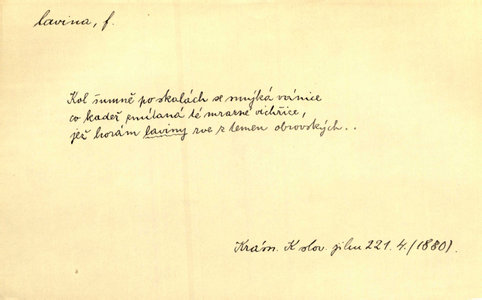 lavina, f.
Kol šumně po skalách se smýká vánice
co kadeř zmítaná té mrazné vichřice,
jež horám laviny rve z temen obrovských..
Krásn. K slov. jihu 221. 4. (1880).